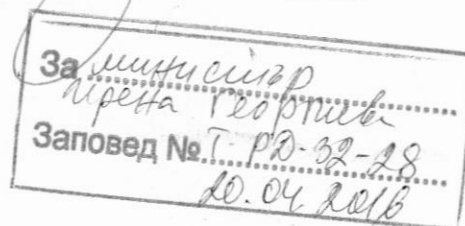 За министър
Ирена Георгиева
Заповед № Т-РД-32-28
20.04.2016